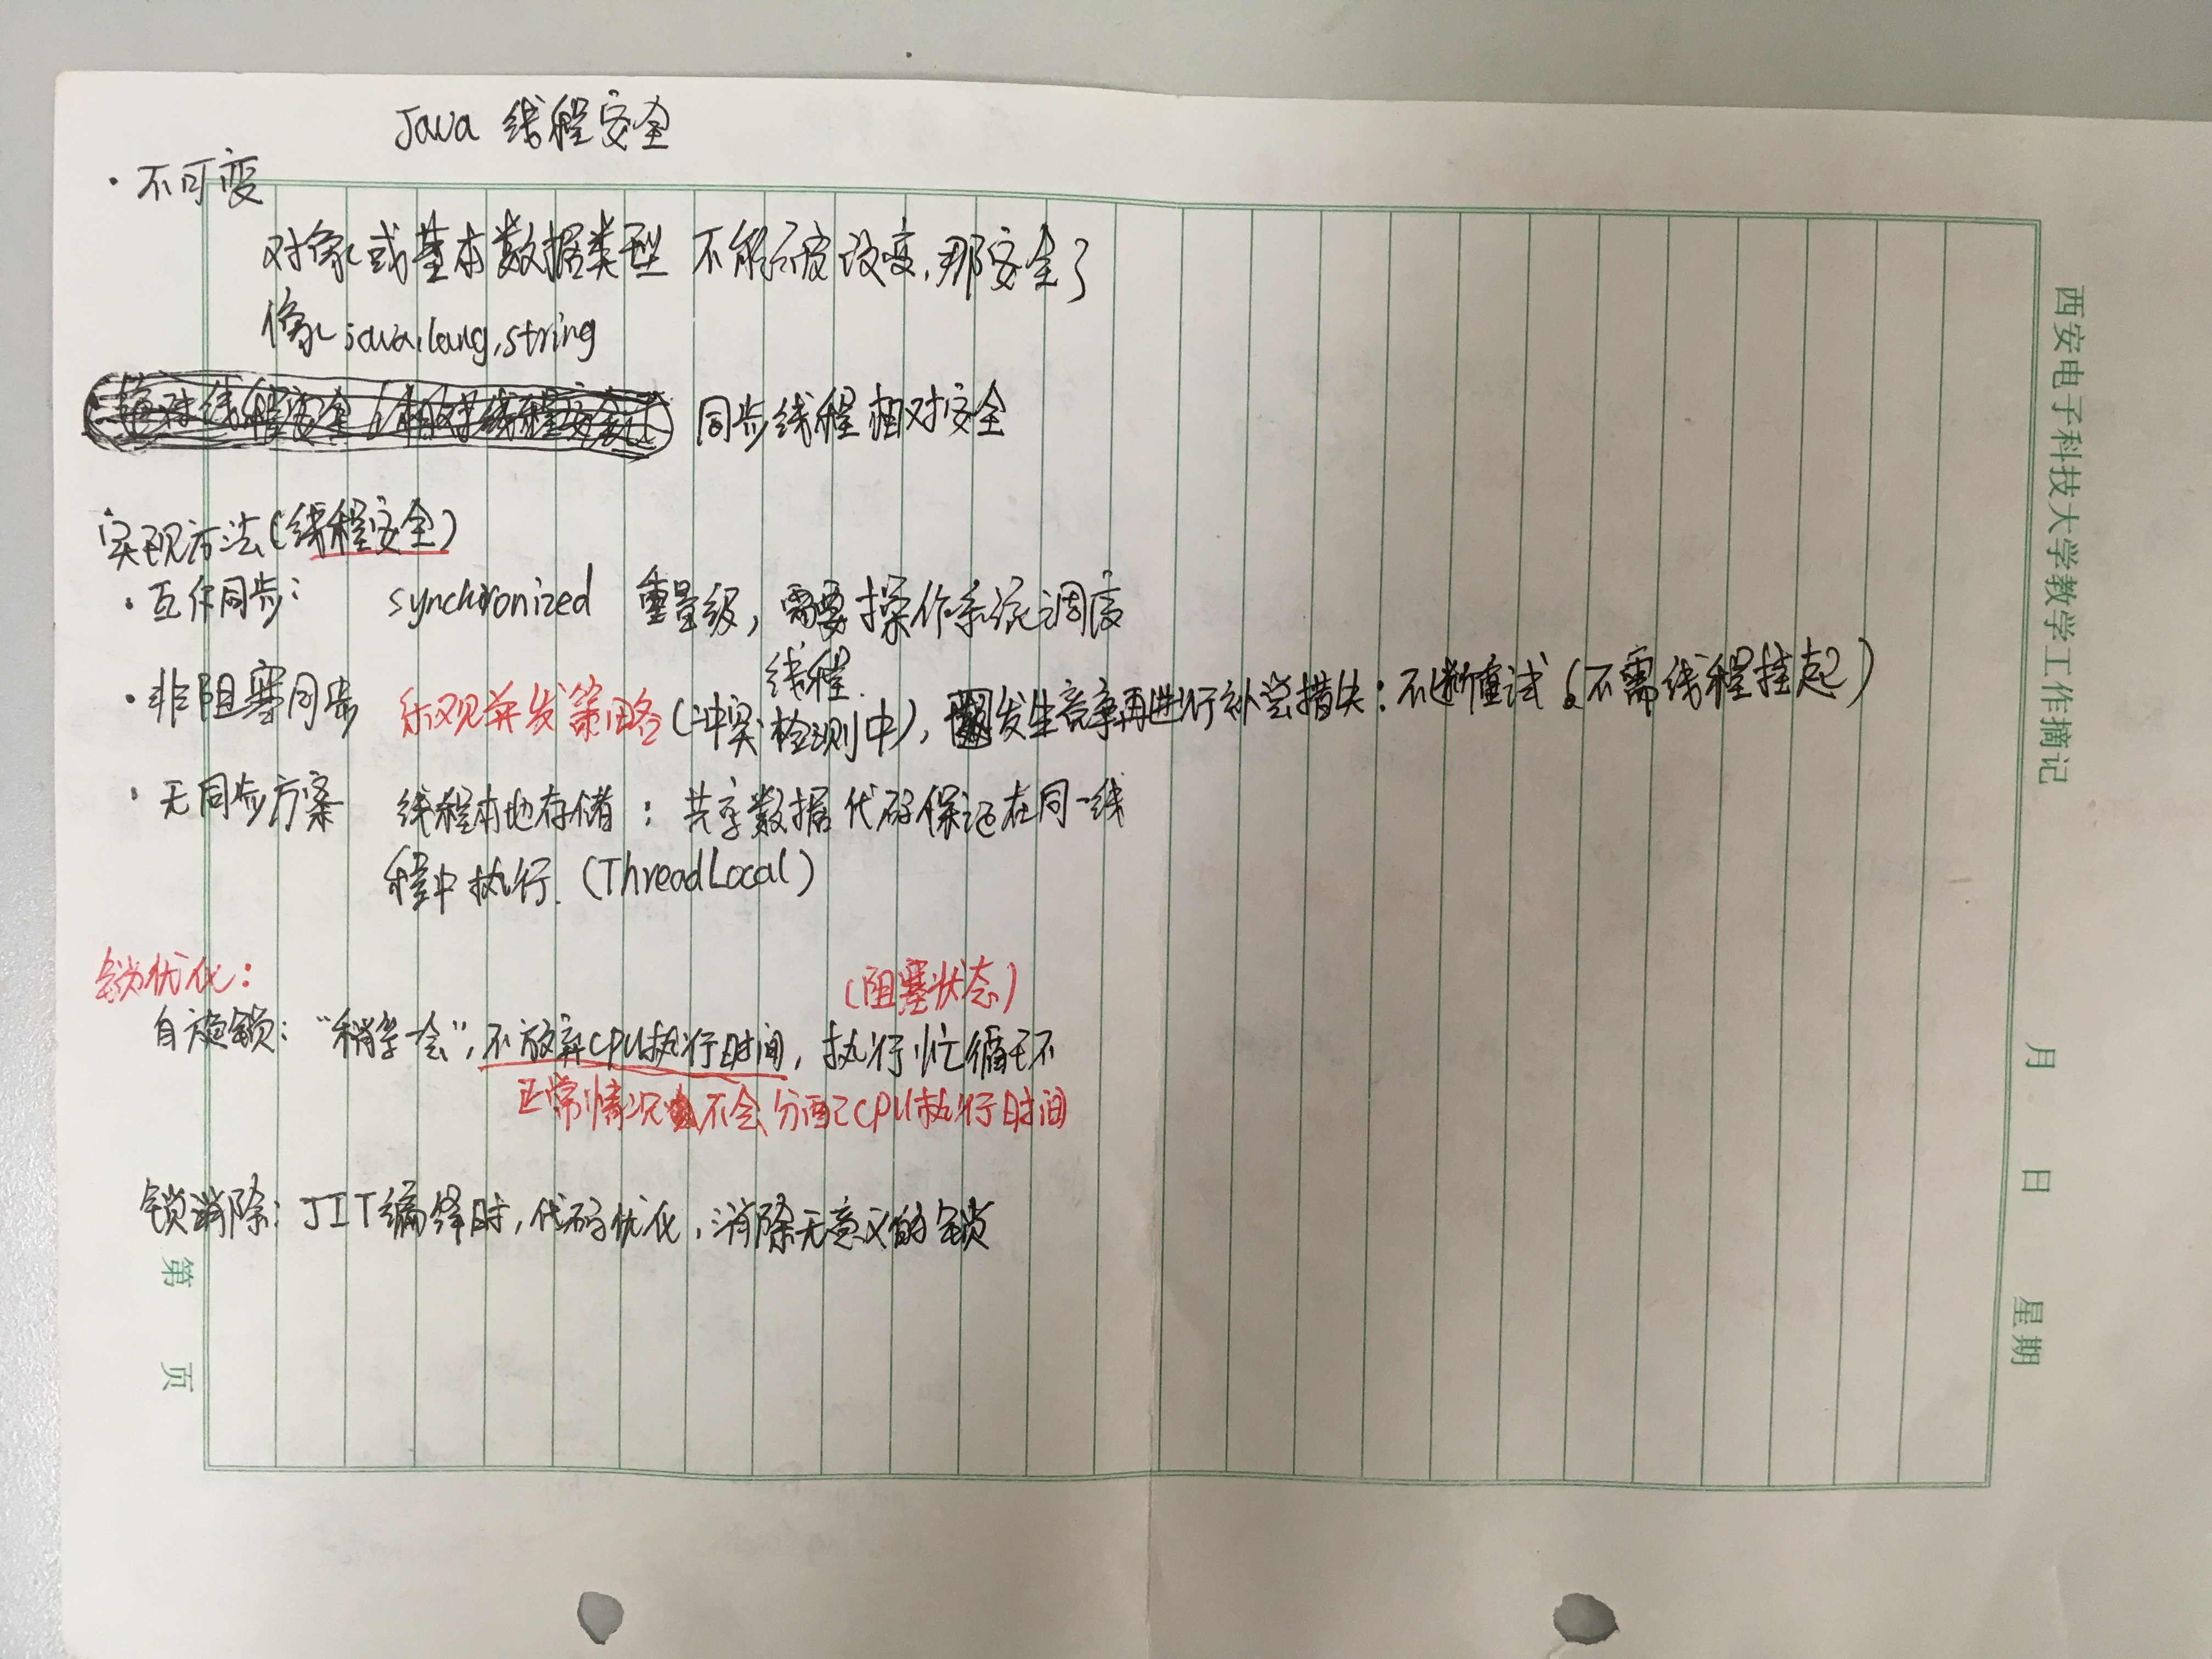 Java 线程安全
· 不可变
对象或基本数据类型 不能被改变,那安全了
像java.lang.string
绝对线程安全 相对线程安全 同步线程相对安全
实现方法(线程安全)
· 互斥同步: synchronized 重量级, 需要操作系统调度
线程
· 非阻塞同步 乐观并发策略(冲突检测中), 发生竞争再进行补偿措失:不断重试(不需线程挂起)
· 无同步方案 线程本地存储: 共享数据代码保证在同一线
程中执行.(ThreadLocal)
锁优化:
(阻塞状态)
自旋锁:“稍等一会”,不放弃CPU执行时间, 执行忙循环
正常情况 不会分配CPU执行时间
锁消除: JIT编译时, 代码优化, 消除无意义的锁
西安电子科技大学教学工作摘记
月 日 星期
第 页